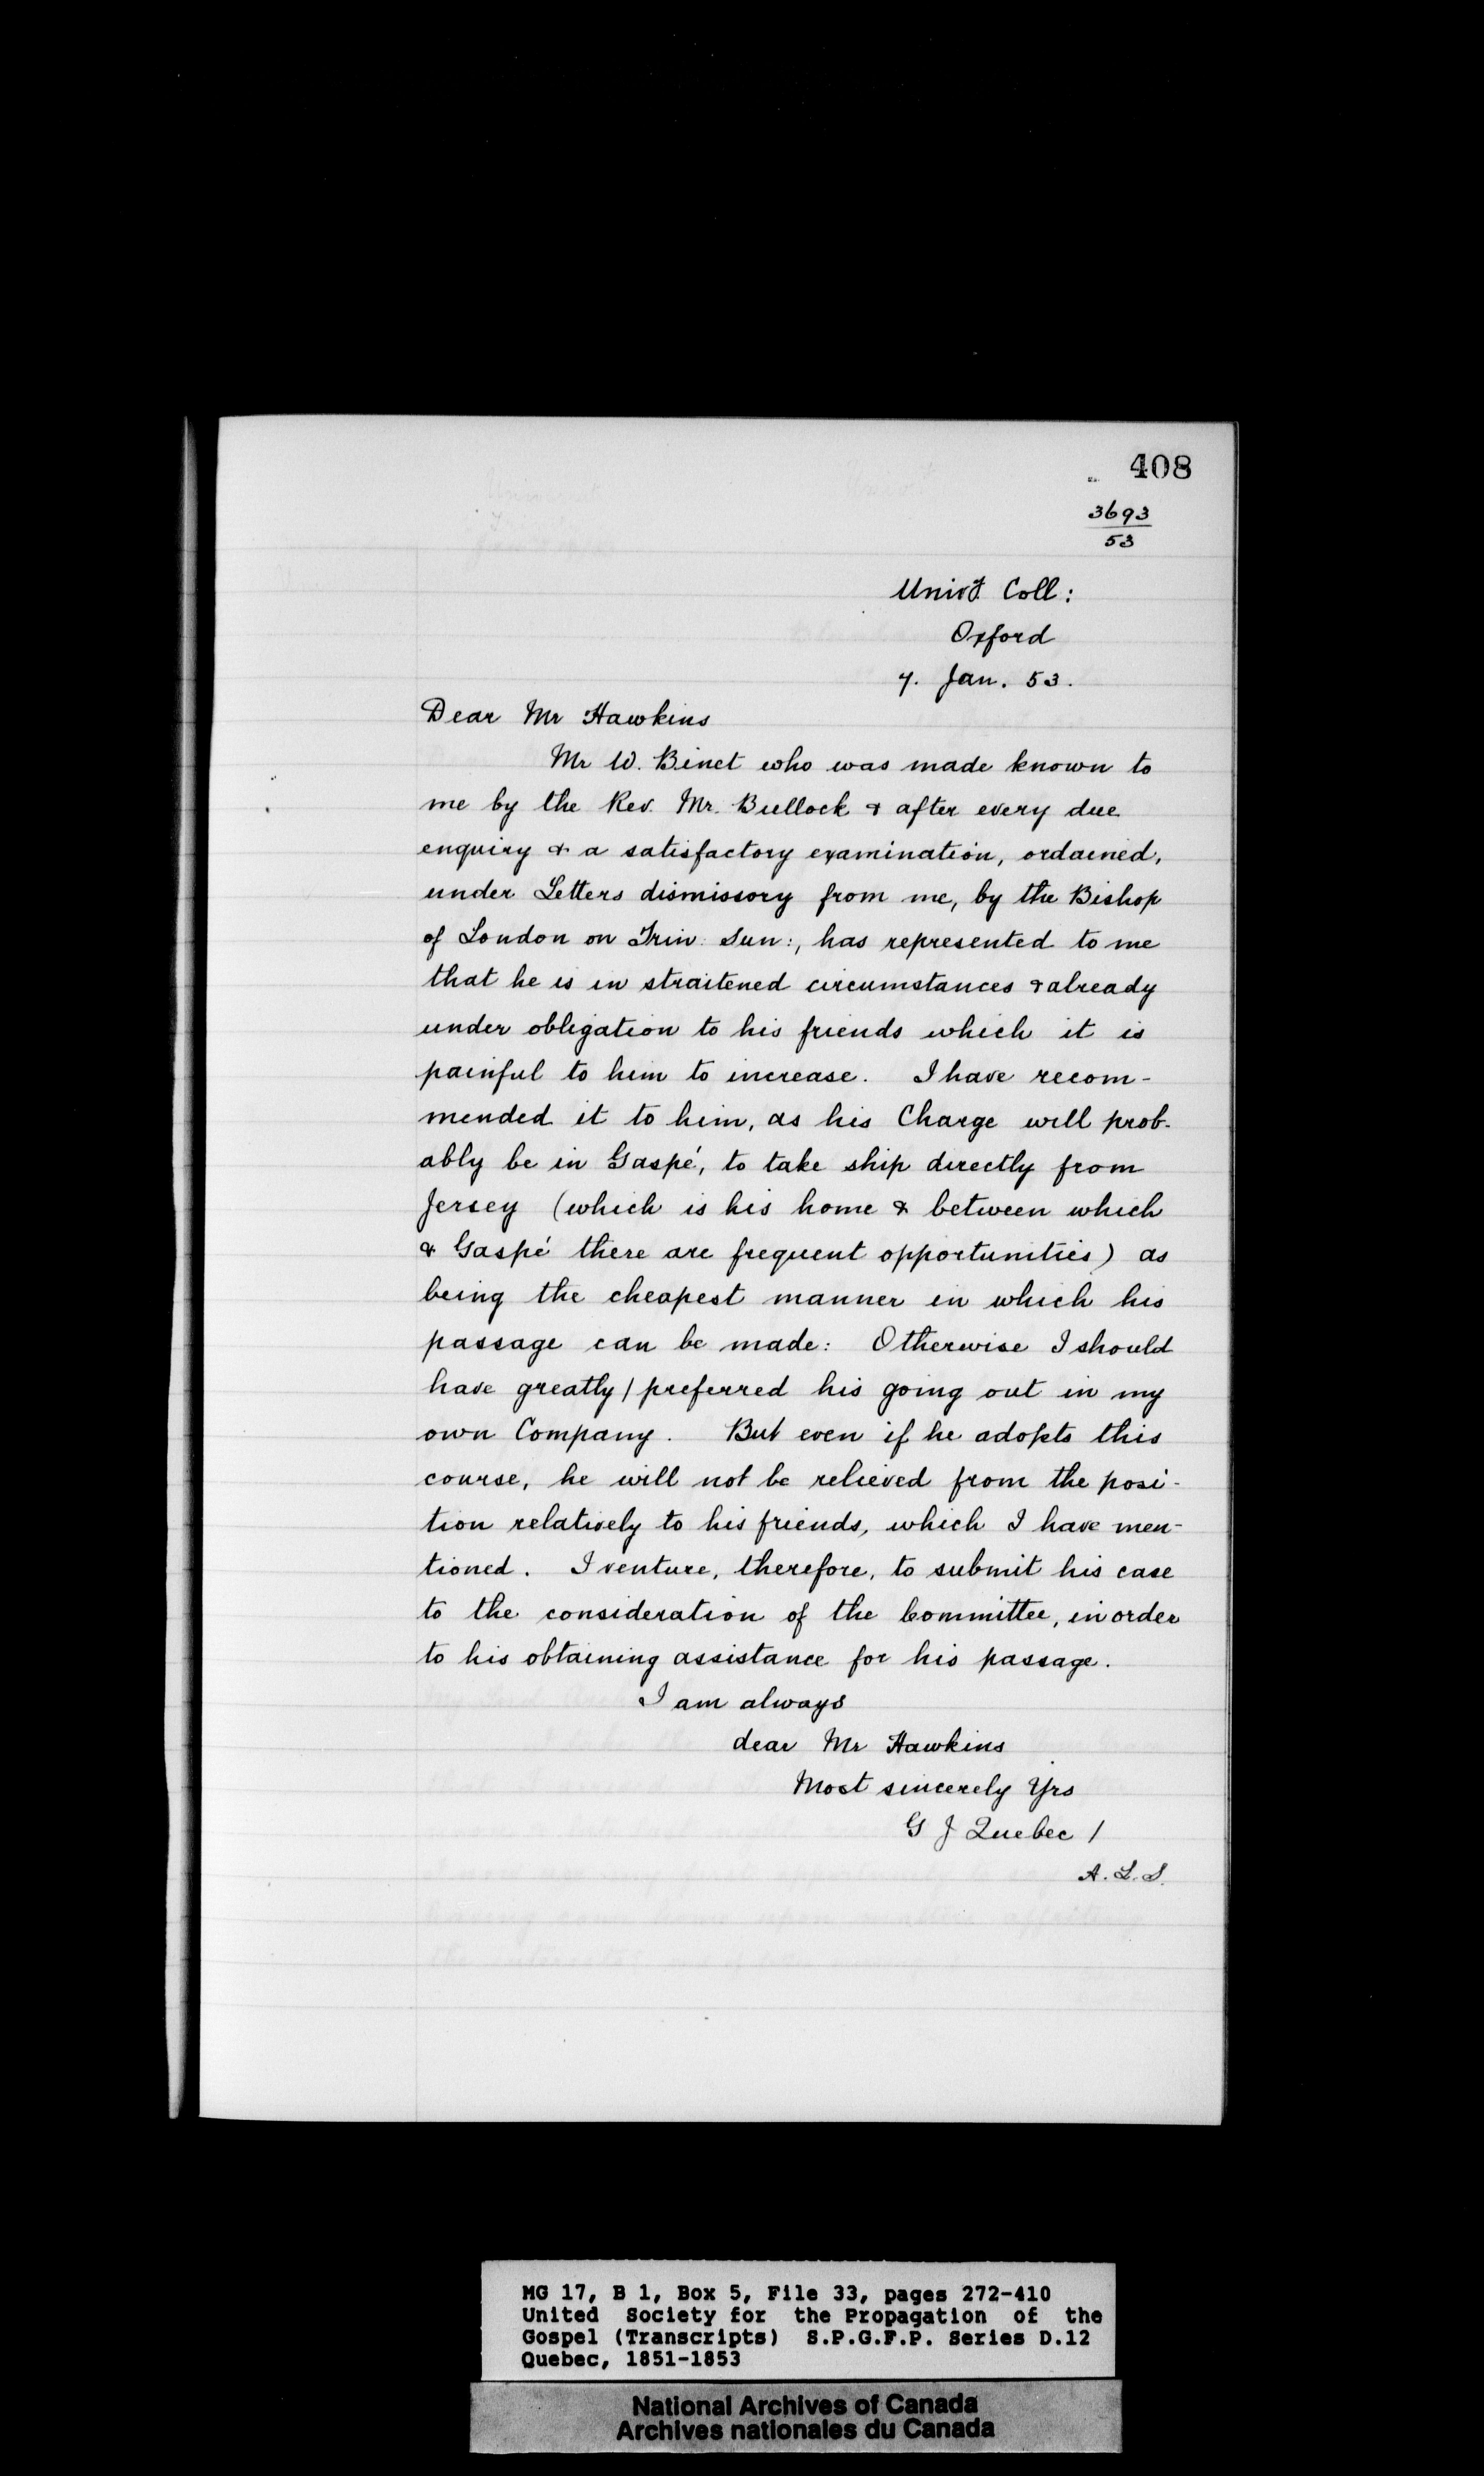 408
3693
53
Univy Coll:
Oxford
7. Jan. 53.
Dear Mr Hawkins
Mr W. Binet who was made known to
me by the Rev. Mr. Bullock & after every due
enquiry & a satisfactory examination, ordained,
under Letters dismissory from me, by the Bishop
of London on Trin: Sun:, has represented to me
that he is in straitened circumstances & already
under obligation to his friends which it is
painful to him to increase. I have recom-
mended it to him, as his Charge will prob-
ably be in Gaspé, to take ship directly from
Jersey (which is his home & between which
& Gaspé there are frequent opportunities) as
being the cheapest manner in which his
passage can be made: Otherwise I should
have greatly / preferred his going out in my
own Company. But even if he adopts this
course, he will not be relieved from the posi-
tion relatively to his friends, which I have men-
tioned. I venture, therefore, to submit his case
to the consideration of the Committee, in order
to his obtaining assistance for his passage.
I am always
dear Mr Hawkins
Most sincerely Yrs
G J Quebec /
A. L. S.
MG 17, B 1, Box 5, File 33, pages 272-410
United Society for the Propagation of the
Gospel (Transcripts) S.P.G.F.P. Series D.12
Quebec, 1851-1853
National Archives of Canada
Archives nationales du Canada